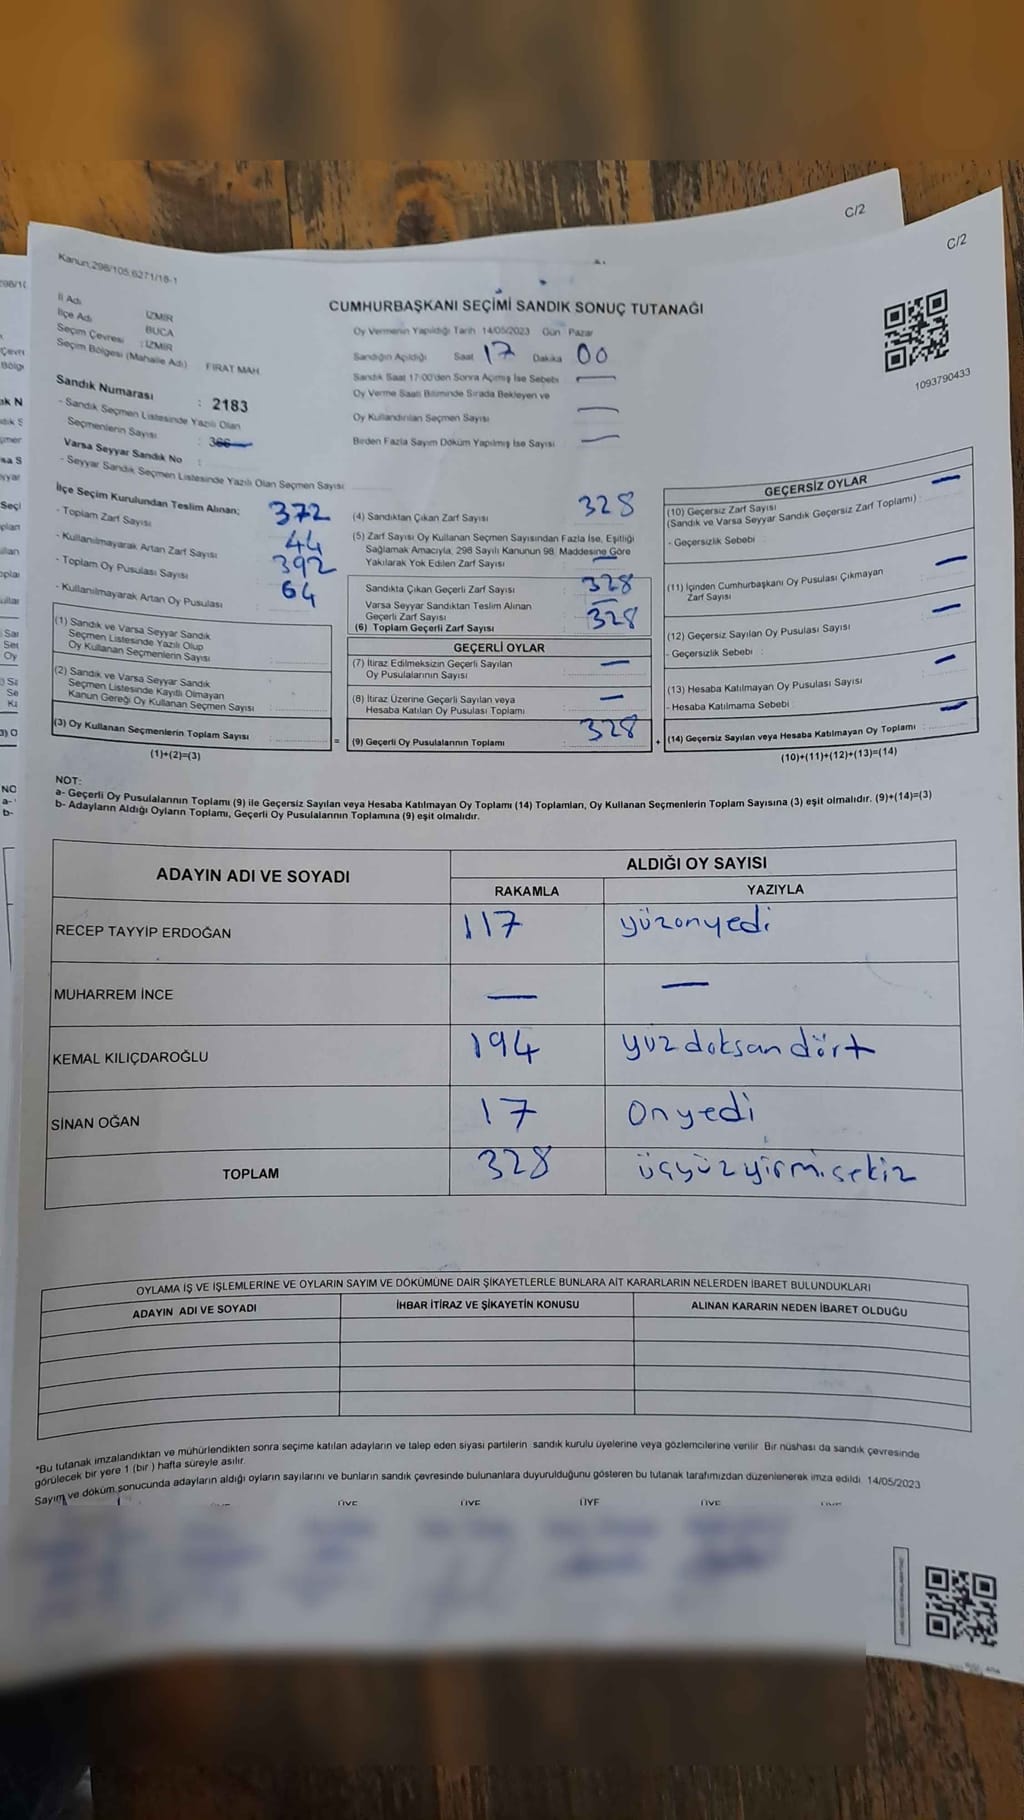 C/2
C/2
Kanun;298/105;6271/18-1
1093790433
CUMHURBAŞKANI SEÇİMİ SANDIK SONUÇ TUTANAĞI
İl Adı : İZMİR
İlçe Adı : BUCA
Seçim Çevresi : İZMİR
Seçim Bölgesi (Mahalle Adı) FIRAT MAH.
Oy Vermenin Yapıldığı Tarih 14/05/2023 Gün Pazar
Sandığın Açıldığı Saat 17 Dakika 00
Sandık Saat 17:00'den Sonra Açılmış İse Sebebi —
Oy Verme Saati Bitiminde Sırada Bekleyen ve
Oy Kullandırılan Seçmen Sayısı —
Birden Fazla Sayım Döküm Yapılmış İse Sayısı —
Sandık Numarası : 2183
- Sandık Seçmen Listesinde Yazılı Olan
Seçmenlerin Sayısı :
Varsa Seyyar Sandık No :
- Seyyar Sandık Seçmen Listesinde Yazılı Olan Seçmen Sayısı:
İlçe Seçim Kurulundan Teslim Alınan;
- Toplam Zarf Sayısı 372
- Kullanılmayarak Artan Zarf Sayısı 44
- Toplam Oy Pusulası Sayısı 392
- Kullanılmayarak Artan Oy Pusulası 64
(1) Sandık ve Varsa Seyyar Sandık
Seçmen Listesinde Yazılı Olup
Oy Kullanan Seçmenlerin Sayısı
(2) Sandık ve Varsa Seyyar Sandık
Seçmen Listesinde Kayıtlı Olmayan
Kanun Gereği Oy Kullanan Seçmen Sayısı :
(3) Oy Kullanan Seçmenlerin Toplam Sayısı
(1)+(2)=(3)
(4) Sandıktan Çıkan Zarf Sayısı 328
(5) Zarf Sayısı Oy Kullanan Seçmen Sayısından Fazla İse, Eşitliği
Sağlamak Amacıyla, 298 Sayılı Kanunun 98. Maddesine Göre
Yakılarak Yok Edilen Zarf Sayısı —
Sandıkta Çıkan Geçerli Zarf Sayısı 328
Varsa Seyyar Sandıktan Teslim Alınan
Geçerli Zarf Sayısı —
(6) Toplam Geçerli Zarf Sayısı 328
GEÇERLİ OYLAR
(7) İtiraz Edilmeksizin Geçerli Sayılan
Oy Pusulalarının Sayısı —
(8) İtiraz Üzerine Geçerli Sayılan veya
Hesaba Katılan Oy Pusulası Toplamı —
= (9) Geçerli Oy Pusulalarının Toplamı 328 +
GEÇERSİZ OYLAR
(10) Geçersiz Zarf Sayısı —
(Sandık ve Varsa Seyyar Sandık Geçersiz Zarf Toplamı) :
- Geçersizlik Sebebi :
(11) İçinden Cumhurbaşkanı Oy Pusulası Çıkmayan
Zarf Sayısı —
(12) Geçersiz Sayılan Oy Pusulası Sayısı —
- Geçersizlik Sebebi :
(13) Hesaba Katılmayan Oy Pusulası Sayısı —
- Hesaba Katılmama Sebebi :
(14) Geçersiz Sayılan veya Hesaba Katılmayan Oy Toplamı : —
(10)+(11)+(12)+(13)=(14)
NOT:
a- Geçerli Oy Pusulalarının Toplamı (9) ile Geçersiz Sayılan veya Hesaba Katılmayan Oy Toplamı (14) Toplamları, Oy Kullanan Seçmenlerin Toplam Sayısına (3) eşit olmalıdır. (9)+(14)=(3)
b- Adayların Aldığı Oyların Toplamı, Geçerli Oy Pusulalarının Toplamına (9) eşit olmalıdır.
ADAYIN ADI VE SOYADI ALDIĞI OY SAYISI
RAKAMLA YAZIYLA
RECEP TAYYİP ERDOĞAN 117 yüzonyedi
MUHARREM İNCE — —
KEMAL KILIÇDAROĞLU 194 yüzdoksandört
SİNAN OĞAN 17 Onyedi
TOPLAM 328 üçyüzyirmisekiz
OYLAMA İŞ VE İŞLEMLERİNE VE OYLARIN SAYIM VE DÖKÜMÜNE DAİR ŞİKAYETLERLE BUNLARA AİT KARARLARIN NELERDEN İBARET BULUNDUKLARI
ADAYIN ADI VE SOYADI İHBAR İTİRAZ VE ŞİKAYETİN KONUSU ALINAN KARARIN NEDEN İBARET OLDUĞU
*Bu tutanak imzalandıktan ve mühürlendikten sonra seçime katılan adayların ve talep eden siyasi partilerin sandık kurulu üyelerine veya gözlemcilerine verilir. Bir nüshası da sandık çevresinde
görülecek bir yere 1 (bir ) hafta süreyle asılır.
Sayım ve döküm sonucunda adayların aldığı oyların sayılarını ve bunların sandık çevresinde bulunanlara duyurulduğunu gösteren bu tutanak tarafımızdan düzenlenerek imza edildi. 14/05/2023
ÜYE ÜYE ÜYE ÜYE